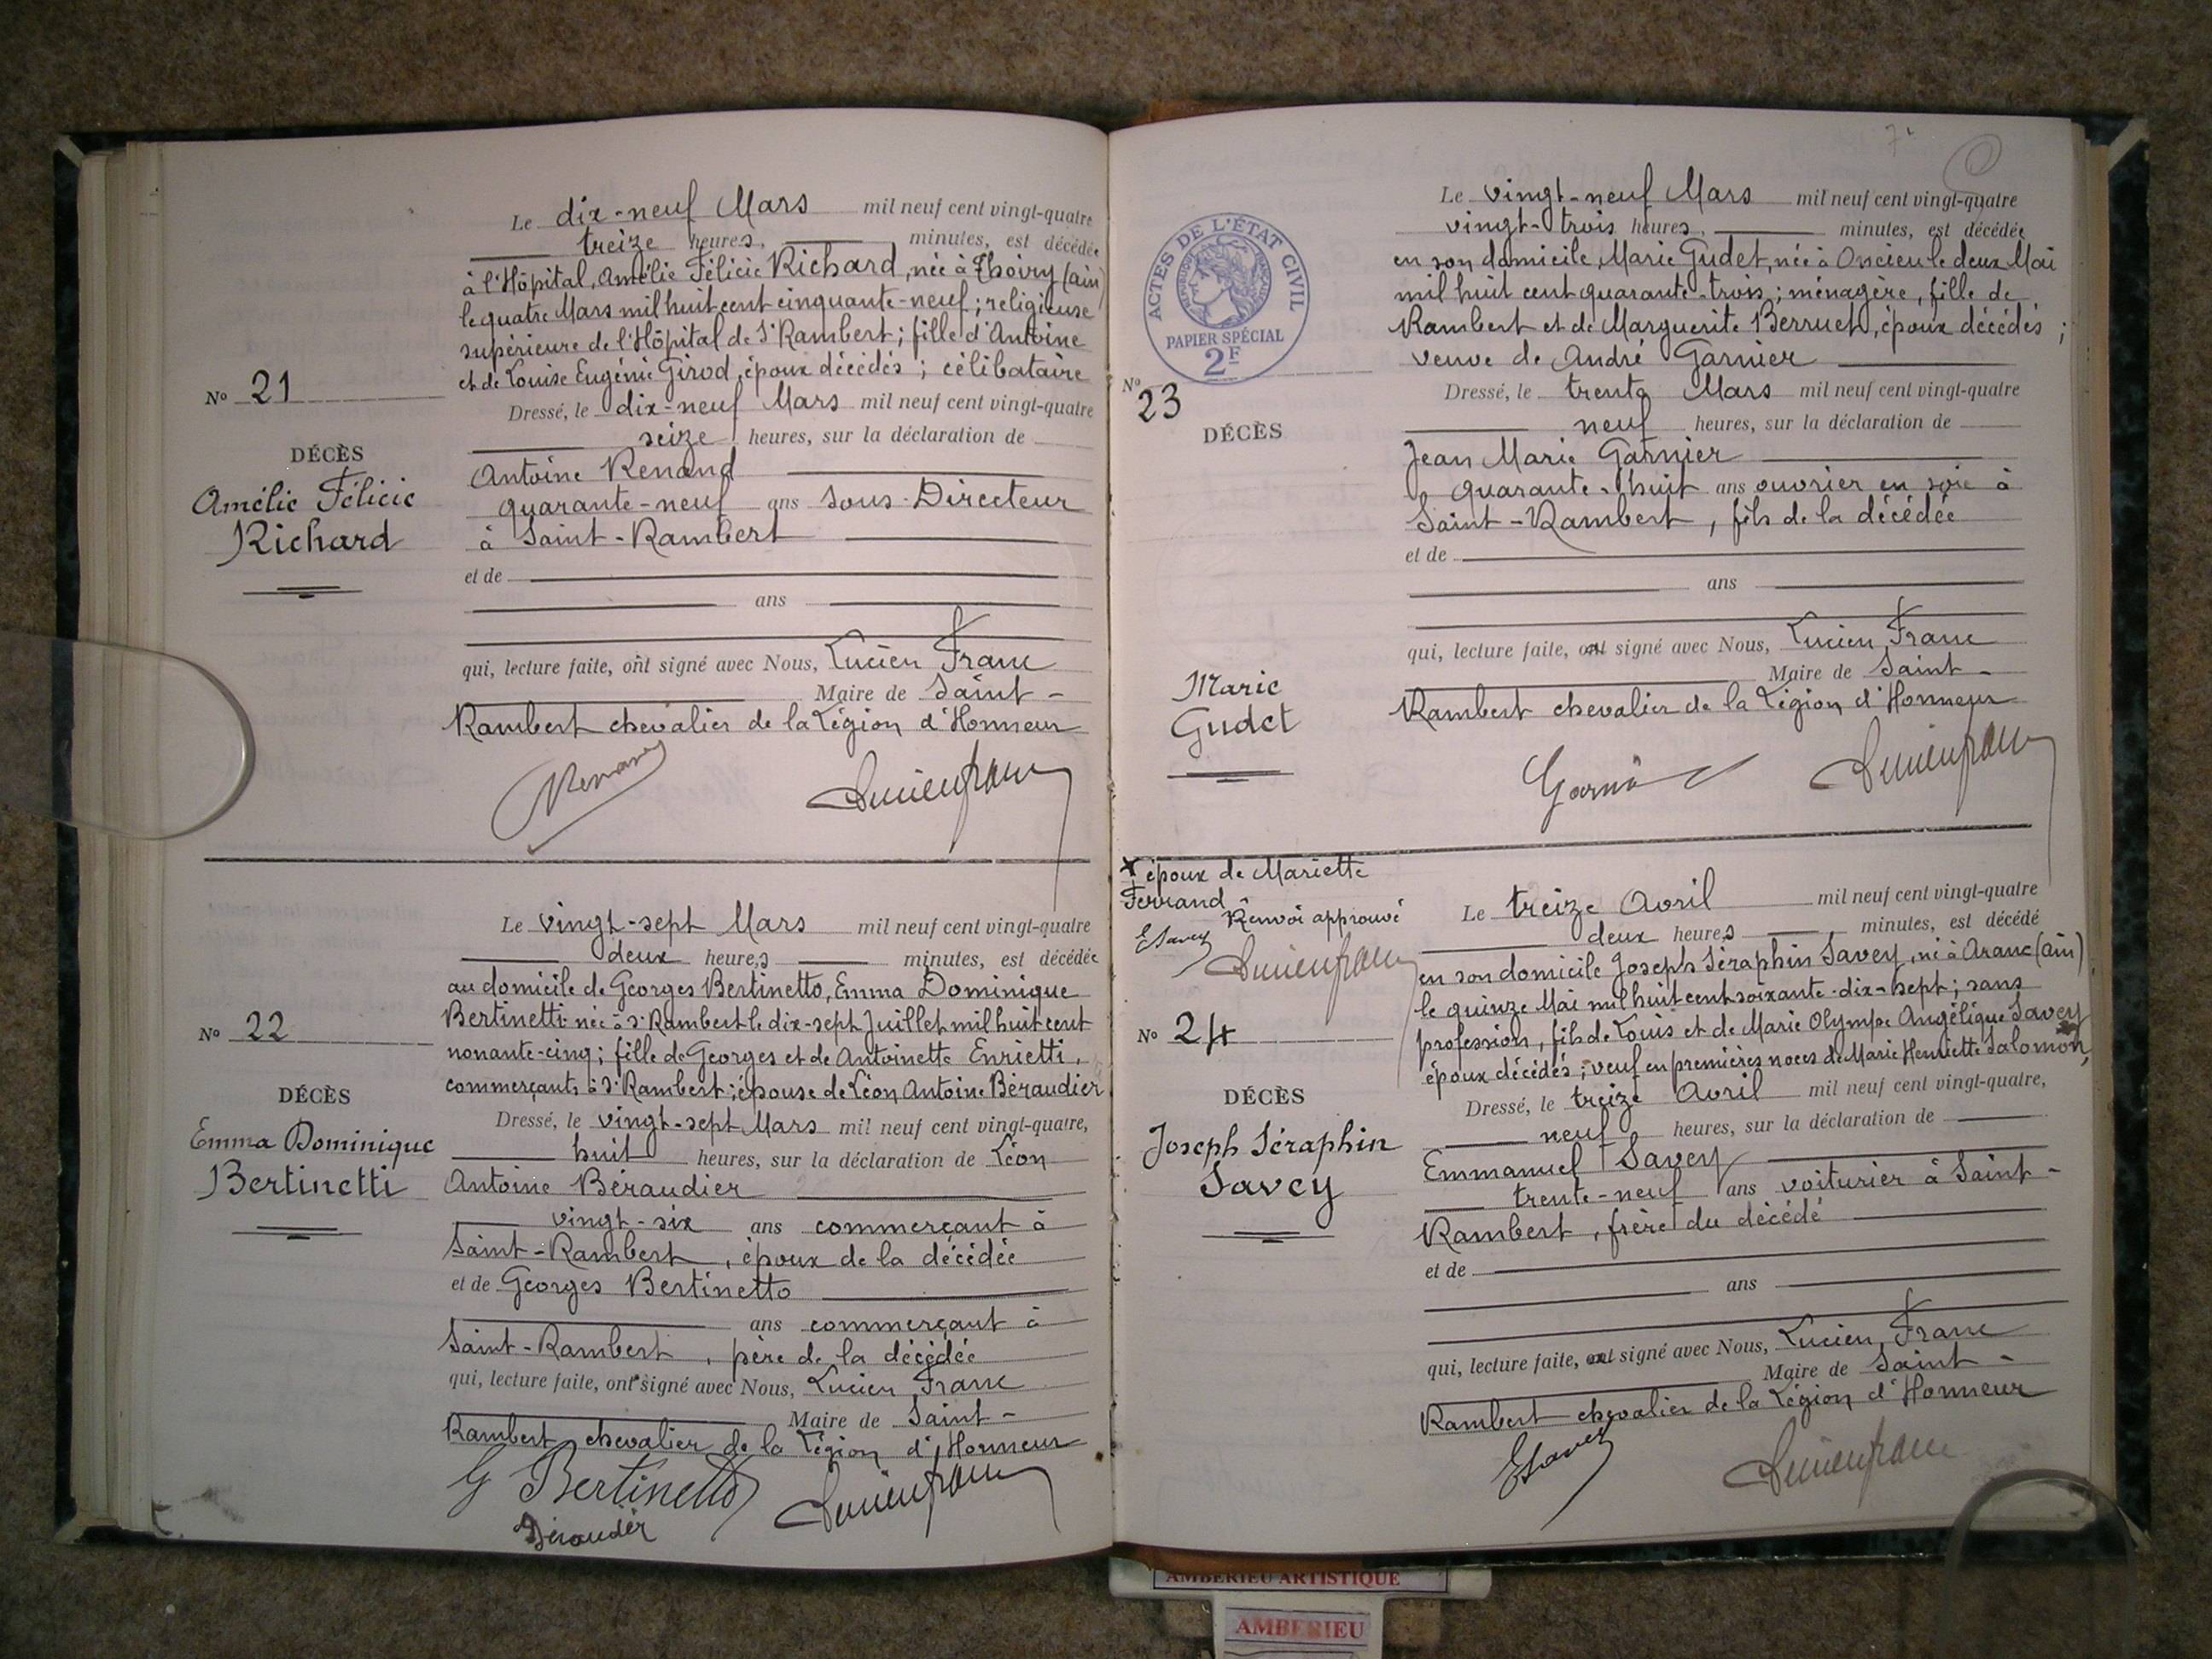 Le dix-neuf Mars mil neuf cent vingt-quatre
treize heures, minutes, est décédée
à l'Hôpital, Amélie Félicie Richard, née à Thoiry (ain)
le quatre Mars mil huit cent cinquante-neuf; religieuse
supérieure de l'Hôpital de St Rambert; fille d'Antoine
et de Louise Eugénie Girod, époux décédés; célibataire
Nº 21
Dressé, le dix-neuf Mars mil neuf cent vingt-quatre
seize heures, sur la déclaration de
DÉCÈS
Amélie Félicie
Richard
Antoine Renand
quarante-neuf ans Sous-Directeur
à Saint-Rambert
et de
ans
qui, lecture faite, ont signé avec Nous, Lucien Franc
Maire de Saint-
Rambert chevalier de la Légion d'Honneur
Renand
Lucien franc
Le vingt-sept Mars mil neuf cent vingt-quatre
deux heures minutes, est décédée
au domicile de Georges Bertinetto, Emma Dominique
Bertinetti née à St Rambert le dix-sept Juillet mil huit cent
nonante-cinq; fille de Georges et de Antoinette Enrietti,
commerçants à St Rambert; épouse de Léon Antoine Béraudier
Nº 22
DÉCÈS
Emma Dominique
Bertinetti
Dressé, le vingt-sept Mars mil neuf cent vingt-quatre,
huit heures, sur la déclaration de Léon
Antoine Béraudier
vingt-six ans commerçant à
Saint-Rambert, époux de la décédée
et de Georges Bertinetto
ans commerçant à
Saint-Rambert, père de la décédée
qui, lecture faite, ont signé avec Nous, Lucien Franc
Maire de Saint-
Rambert chevalier de la Légion d'Honneur
G Bertinetto
Lucien franc
Béraudier
ACTES DE L'ÉTAT CIVIL
RÉPUBLIQUE FRANÇAISE
PAPIER SPÉCIAL
2F
Le vingt-neuf Mars mil neuf cent vingt-quatre
vingt-trois heures, minutes, est décédée
en son domicile, Marie Gudet, née à Oncieu le deux Mai
mil huit cent quarante-trois; ménagère, fille de
Rambert et de Marguerite Berruet, époux décédés;
veuve de André Garnier
Nº 23
DÉCÈS
Marie
Gudet
Dressé, le trente Mars mil neuf cent vingt-quatre
neuf heures, sur la déclaration de
Jean Marie Garnier
quarante-huit ans ouvrier en soie à
Saint-Rambert, fils de la décédée
et de
ans
qui, lecture faite, a signé avec Nous, Lucien Franc
Maire de Saint-
Rambert chevalier de la Légion d'Honneur
Lucien franc
x époux de Mariette
Ferrand
Renvoi approuvé
ESavey
Lucien franc
Le treize Avril mil neuf cent vingt-quatre
deux heures minutes, est décédé
en son domicile Joseph Séraphin Savey, né à Aranc (ain)
le quinze Mai mil huit cent soixante-dix-sept; sans
profession, fils de Louis et de Marie Olympe Angélique Savey
époux décédés; veuf en premières noces de Marie Henriette Salomon,
Nº 24
DÉCÈS
Joseph Séraphin
Savey
Dressé, le treize Avril mil neuf cent vingt-quatre,
neuf heures, sur la déclaration de
Emmanuel Savey
trente-neuf ans voiturier à Saint-
Rambert, frère du décédé
et de
ans
qui, lecture faite, a signé avec Nous, Lucien Franc
Maire de Saint-
Rambert chevalier de la Légion d'Honneur
ESavey
Lucien franc
AMBERIEU ARTISTIQUE
AMBERIEU